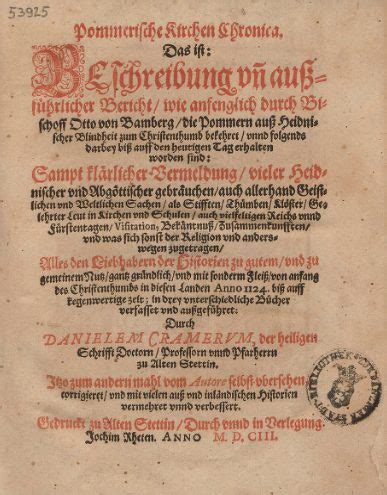 53925
Pommerische Kirchen Chronica.
Das ist:
BEschreibung vñ auß-
führlicher Bericht / wie anfenglich durch Bi-
schoff Otto von Bamberg / die Pommern auß Heidni-
scher Blindheit zum Christenthumb bekehret / vnnd folgends
darbey biß auff den heutigen Tag erhalten
worden sind:
Sampt klärlicher Vermeldung / vieler Heid-
nischer vnd Abgöttischer gebräuchen / auch allerhand Geist-
lichen vnd Weltlichen Sachen / als Stifften / Thümben / Klöster / Ge-
lehrter Leut in Kirchen vnd Schulen / auch vielfeltigen Reichs vnnd
Fürstentagen / Visitation, Bekäntnuß / Zusammenkunfften /
vnd was sich sonst der Religion vnd anders-
wegen zugetragen /
Alles den Liebhabern der Historien zu gutem / vnd zu
gemeinem Nutz / gantz gründlich / vnd mit sonderm Fleiß / von anfang
des Christenthumbs in diesen Landen Anno 1124. biß auff
kegenwertige zeit; in drey vnterschiedliche Bücher
verfasset vnd außgeführet:
Durch
DANIELEM CRAMERVM, der heiligen
Schrifft Doctorn / Professorn vnnd Pfarherrn
zu Alten Stettin.
Itzo zum andern mahl vom Autore selbst vbersehen /
corrigieret / vnd mit vielen auß vnd inländischen Historien
vermehret vnnd verbessert.
Gedruckt zu Alten Stettin / Durch vnnd in Verlegung
Jochim Rheten. ANNO M. D. CIII.